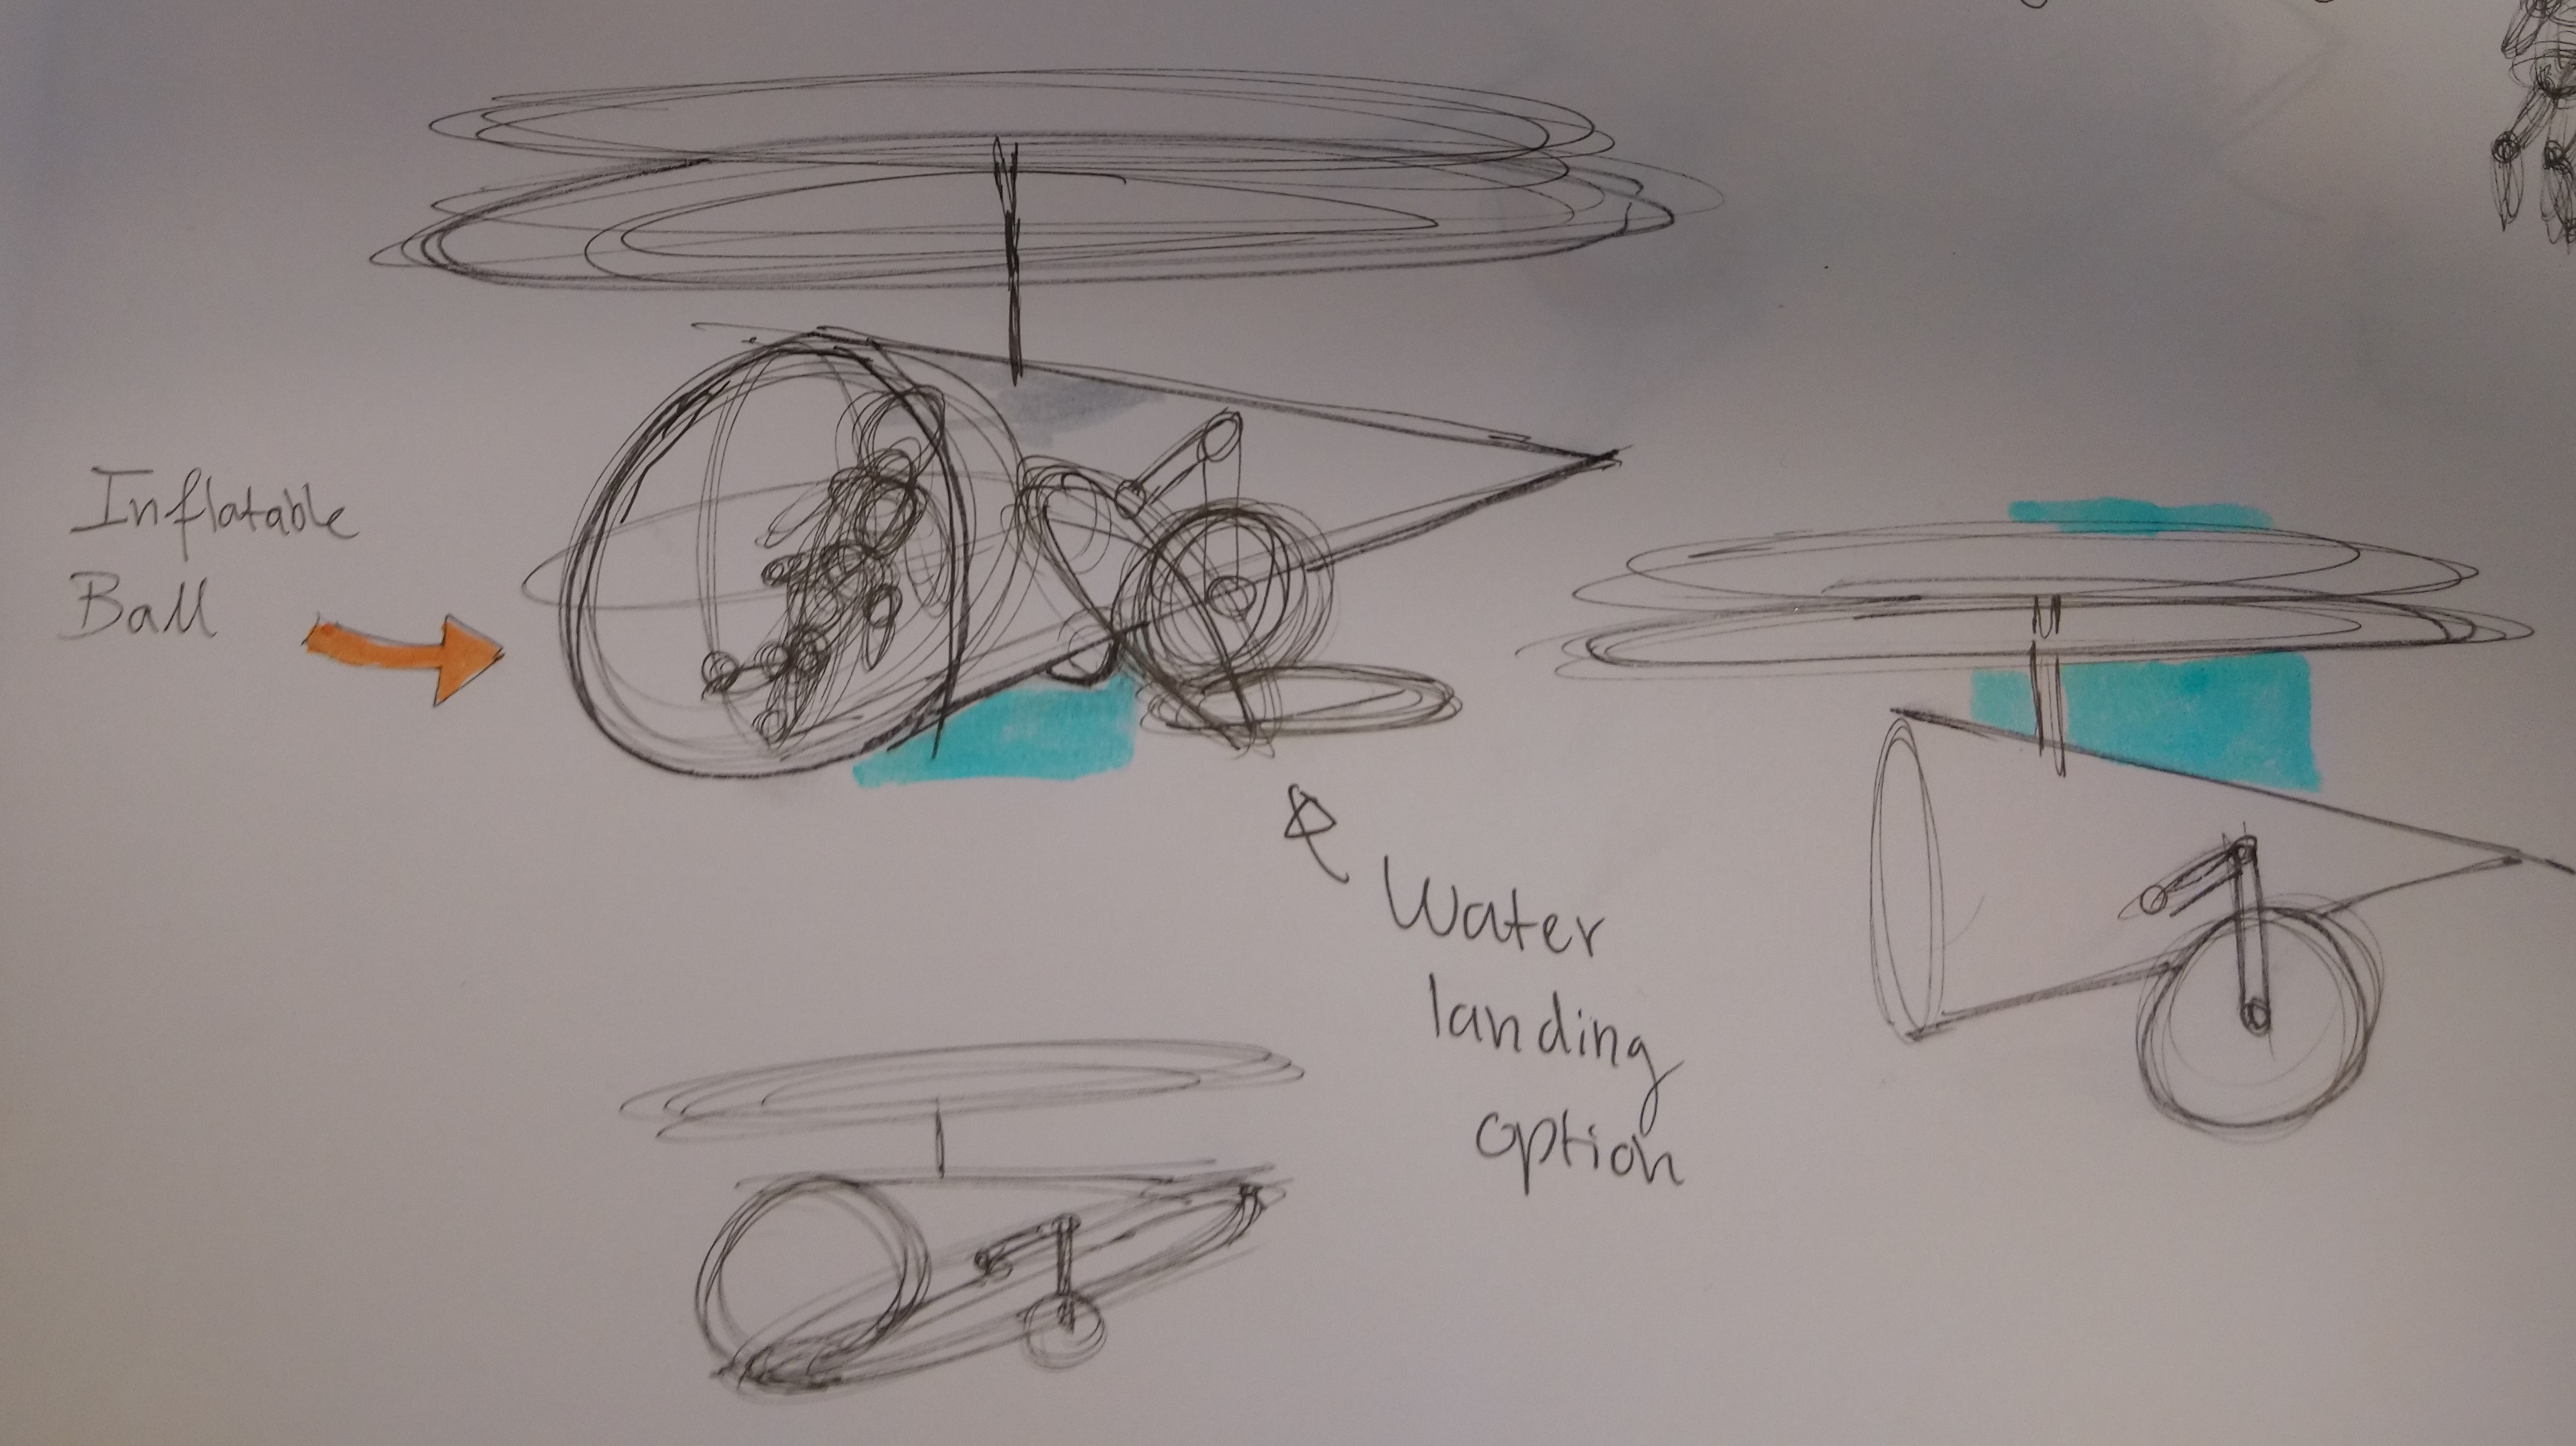 Inflatable
Ball
Water
landing
option